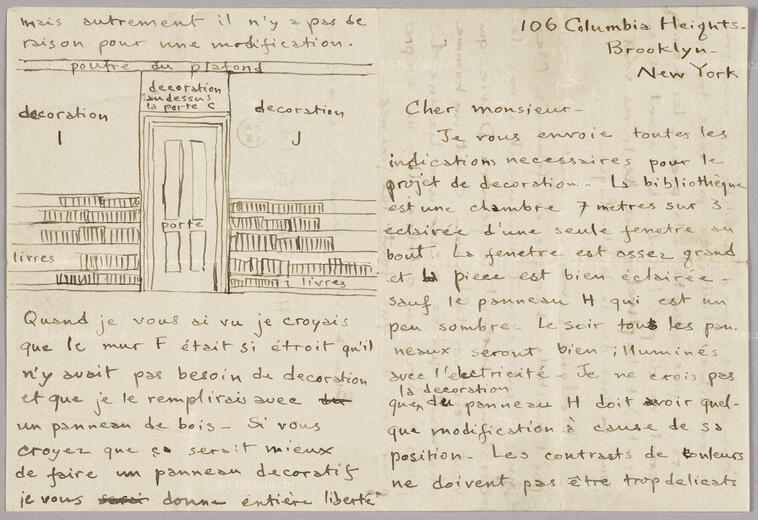 106 Columbia Heights-
Brooklyn-
New York
Cher monsieur-
Je vous envoie toutes les
indications necessaires pour le
projet de decoration- La bibliothèque
est une chambre 7 metres sur 3
éclairée d'une seule fenetre au
bout. La fenetre est assez grand
et la piece est bien éclairée-
sauf le panneau H qui est un
peu sombre- Le soir tous les pan-
neaux seront bien illuminés
avec l'electricité- Je ne crois pas
la decoration
que du panneau H doit avoir quel-
que modification à cause de sa
position- Les contrasts de couleurs
ne doivent pas être trop delicats
mais autrement il n'y a pas de
raison pour une modification.
poutre du plafond
decoration
I
decoration
au dessus
la porte C
decoration
J
porte
livres
livres
Quand je vous ai vu je croyais
que le mur F était si étroit qu'il
n'y avait pas besoin de decoration
et que je le remplirais avec
un panneau de bois- Si vous
croyez que ça serait mieux
de faire un panneau decoratif
je vous donne entière liberté